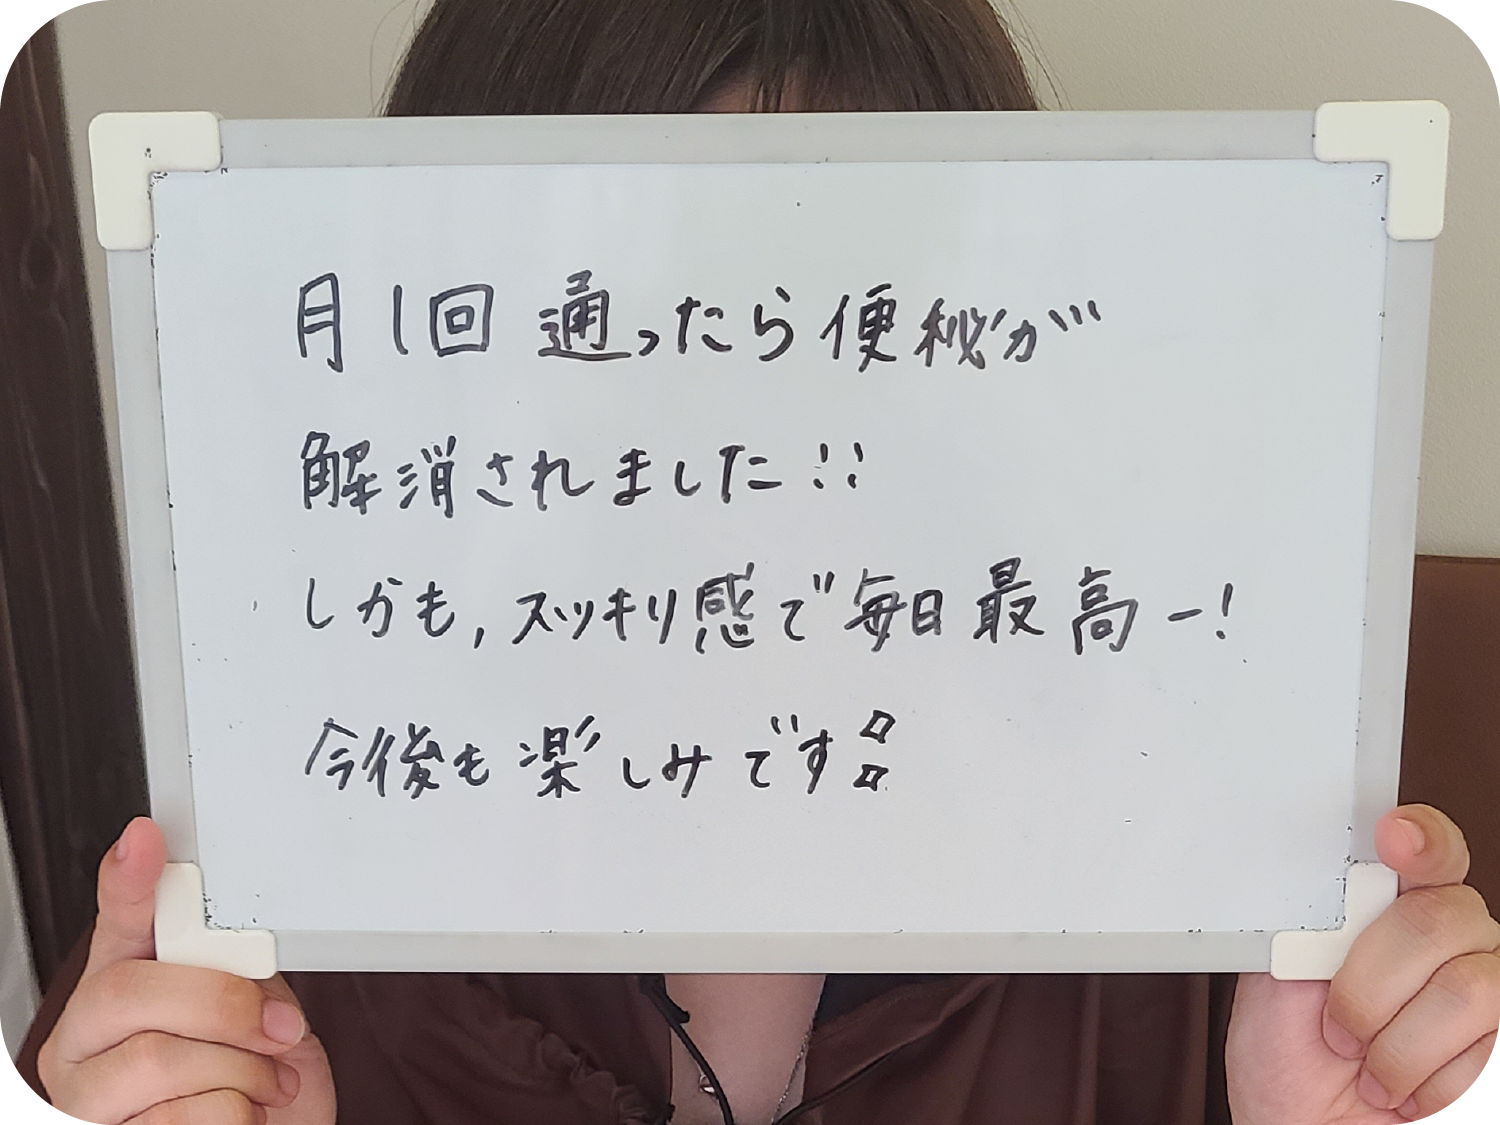 月1回通ったら便秘が
解消されました!!
しかも,スッキリ感で毎日最高ー!
今後も楽しみです